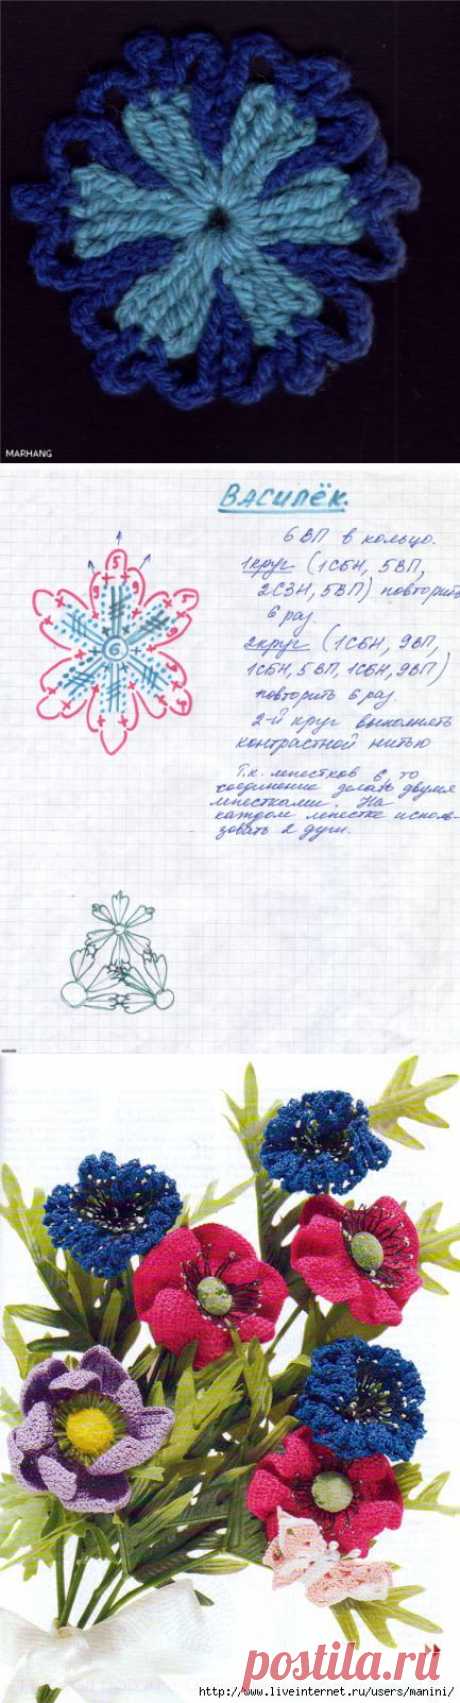 MARHANG
ВАСИЛЁК.
6 ВП в кольцо.
1 круг (1СБН, 5ВП,
2СЗН, 5ВП) повторить
6 раз.
2 круг (1СБН, 9ВП,
1СБН, 5ВП, 1СБН, 9ВП)
повторить 6 раз.
2-й круг выполнять
контрастной нитью
Т.к. лепестков 6, то
соединение делать двумя
лепестками. На
каждом лепестке исполь-
зовать 2 дуги.
5
9
9
6
postila.ru
http://www.liveinternet.ru/users/manini/